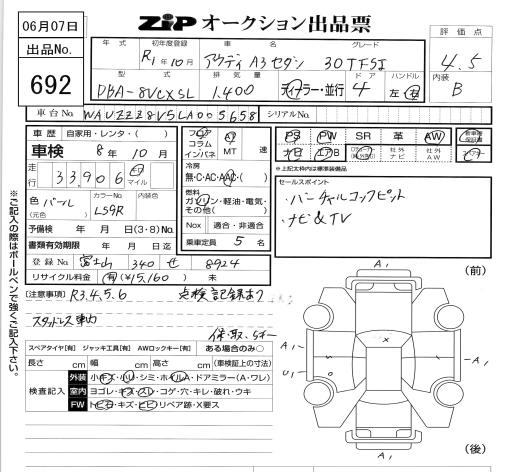 06月07日
ZiPオークション出品票
出品No.
692
評価点
4.5
内装
B
年式 初年度登録 車名 グレード
R1年10月 アウディ A3セダン 30TFSI
型式 排気量 ドア ハンドル
DBA-8VCXSL 1,400 ディーラー・並行 4 左・右
車台No. WAUZZZ8V5LA005658 シリアルNo.
車歴 自家用・レンタ・( )
車検 8年10月
走行 33,906 km マイル
色 パール カラーNo. LS9R 内装色
(元色)
予備検 年 月 日(3・8)No.
書類有効期限 年 月 日迄
登録No. 富士山 340 せ 8924
リサイクル料金 有(¥15,160) 未
フロア コラム インパネ
AT MT 速
冷房
無・C・AC・AAC・( )
燃料
ガソリン・軽油・電気・その他( )
Nox 適合・非適合
乗車定員 5 名
PS PW SR 革 AW 新車時保証書
ナビ 社外AW
※上記太枠内は標準装備品
セールスポイント
・バーチャルコックピット
・ナビ&TV
[注意事項] R3.4.5.6 点検記録あり
スタッドレス車内
保・取、Sキー
スペアタイヤ[有] ジャッキ工具[有] AWロックキー[有] ある場合のみ○
長さ cm 幅 cm 高さ cm (車検証上の寸法)
検査記入
外装 小キズ・小凹・シミ・ホイルA・ドアミラー(A・ワレ)
室内 ヨゴレ・キズ・スレ・コゲ・穴・キレ・破れ・ウキ
FW トビ石・キズ・ヒビ・リペア跡・X要ス
※ご記入の際はボールペンで強くご記入下さい。
(前)
A1
A1
U1
A1
x
A1
(後)